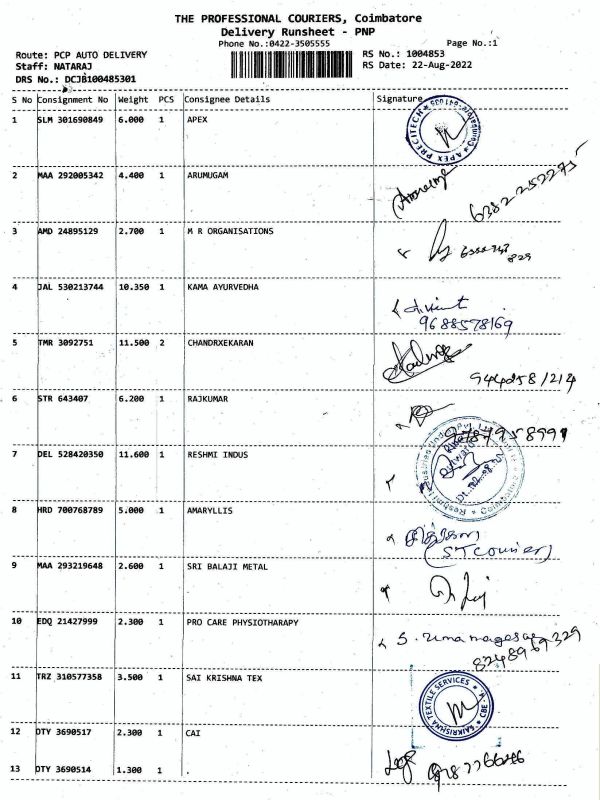 THE PROFESSIONAL COURIERS, Coimbatore
Delivery Runsheet - PNP
Phone No.:0422-3505555
Page No.:1
Route: PCP AUTO DELIVERY
RS No.: 1004853
Staff: NATARAJ
RS Date: 22-Aug-2022
DRS No.: DCJB100485301
S No Consignment No Weight PCS Consignee Details Signature
1 SLM 301690849 6.000 1 APEX
APEX PRECITECH
2 MAA 292005342 4.400 1 ARUMUGAM
3 AMD 24895129 2.700 1 M R ORGANISATIONS
4 JAL 530213744 10.350 1 KAMA AYURVEDHA
9688578169
5 TMR 3092751 11.500 2 CHANDRXEKARAN
6 STR 643407 6.200 1 RAJKUMAR
7 DEL 528420350 11.600 1 RESHMI INDUS
8 HRD 700768789 5.000 1 AMARYLLIS
(ST Courier)
9 MAA 293219648 2.600 1 SRI BALAJI METAL
10 EDQ 21427999 2.300 1 PRO CARE PHYSIOTHARAPY
8248969329
11 TRZ 310577358 3.500 1 SAI KRISHNA TEX
SAIKRISHNA TEXTILE SERVICES CBE
12 OTY 3690517 2.300 1 CAI
13 OTY 3690514 1.300 1 .